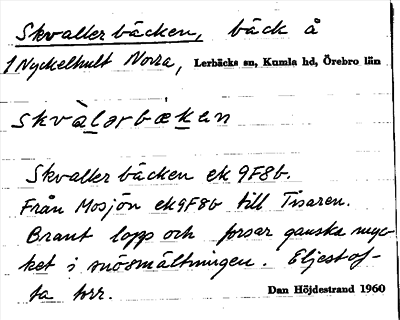 Skvallerbäcken, bäck å
1 Nyckelhult Norra, Lerbäcks sn, Kumla hd, Örebro län
skvàlərbäkən
Skvallerbäcken ek 9F8b.
Från Mosjön ek 9F8b till Tisaren.
Brant lopp och forsar ganska myc-
ket i snösmältningen. Eljest of-
ta torr.
Dan Höjdestrand 1960